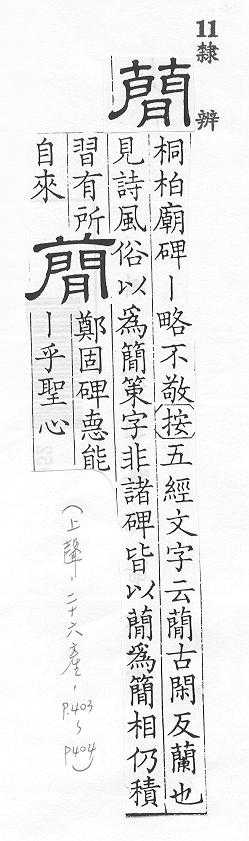 11 隸辨
蕳
桐柏廟碑ー略不敬(按)五經文字云蕳古閑反蘭也
見詩風俗以爲簡策字非諸碑皆以蕳爲簡相仍積
習有所
自來
蕳
鄭固碑悳能
ー乎聖心
(上聲,二十六產,P.403~P404)